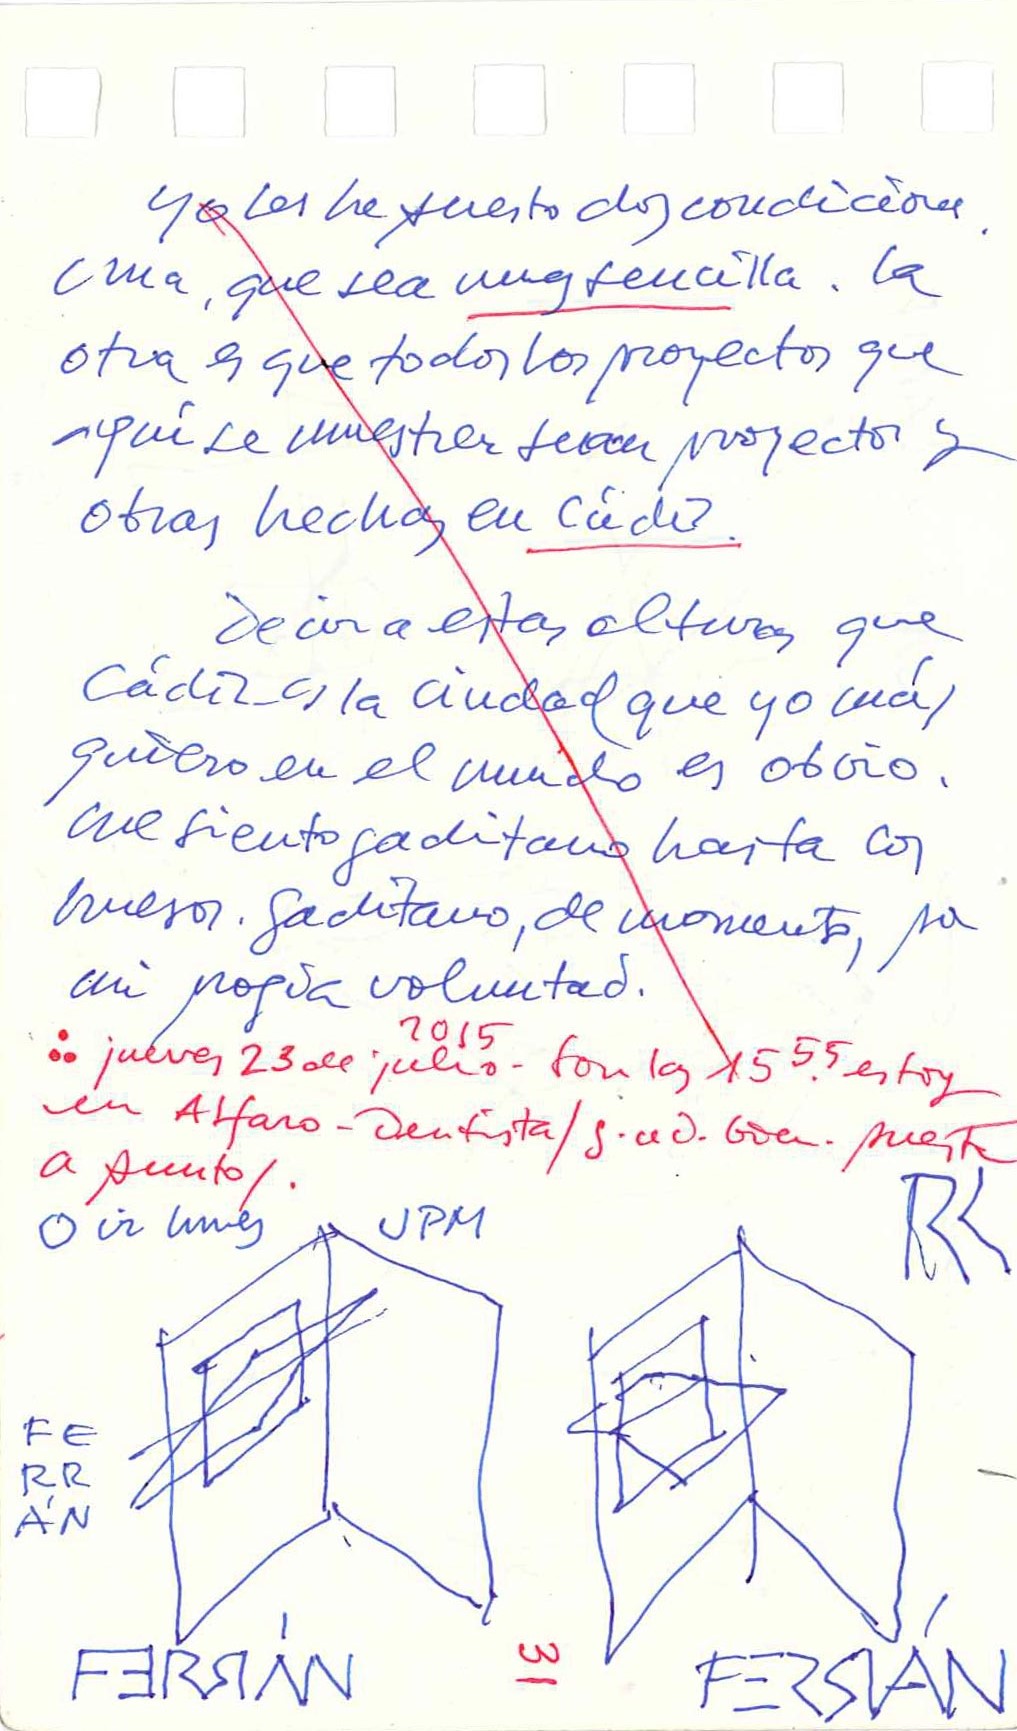 yo les he puesto dos condiciones.
Una, que sea muy sencilla. La
otra es que todos los proyectos que
aquí se muestren sean proyectos y
obras hechas en Cádiz.
Decir a estas alturas que
Cádiz es la ciudad que yo más
quiero en el mundo es obvio.
me siento gaditano hasta los
huesos. Gaditano, de momento, por
mi propia voluntad.
2015
jueves 23 de julio - Son las 15 55. estoy
en Alfaro - Dentista /
puesta
a punto/.
O ir lunes UPM
RR
FE
RR
ÁN
FERRÁN
31
FERRÁN